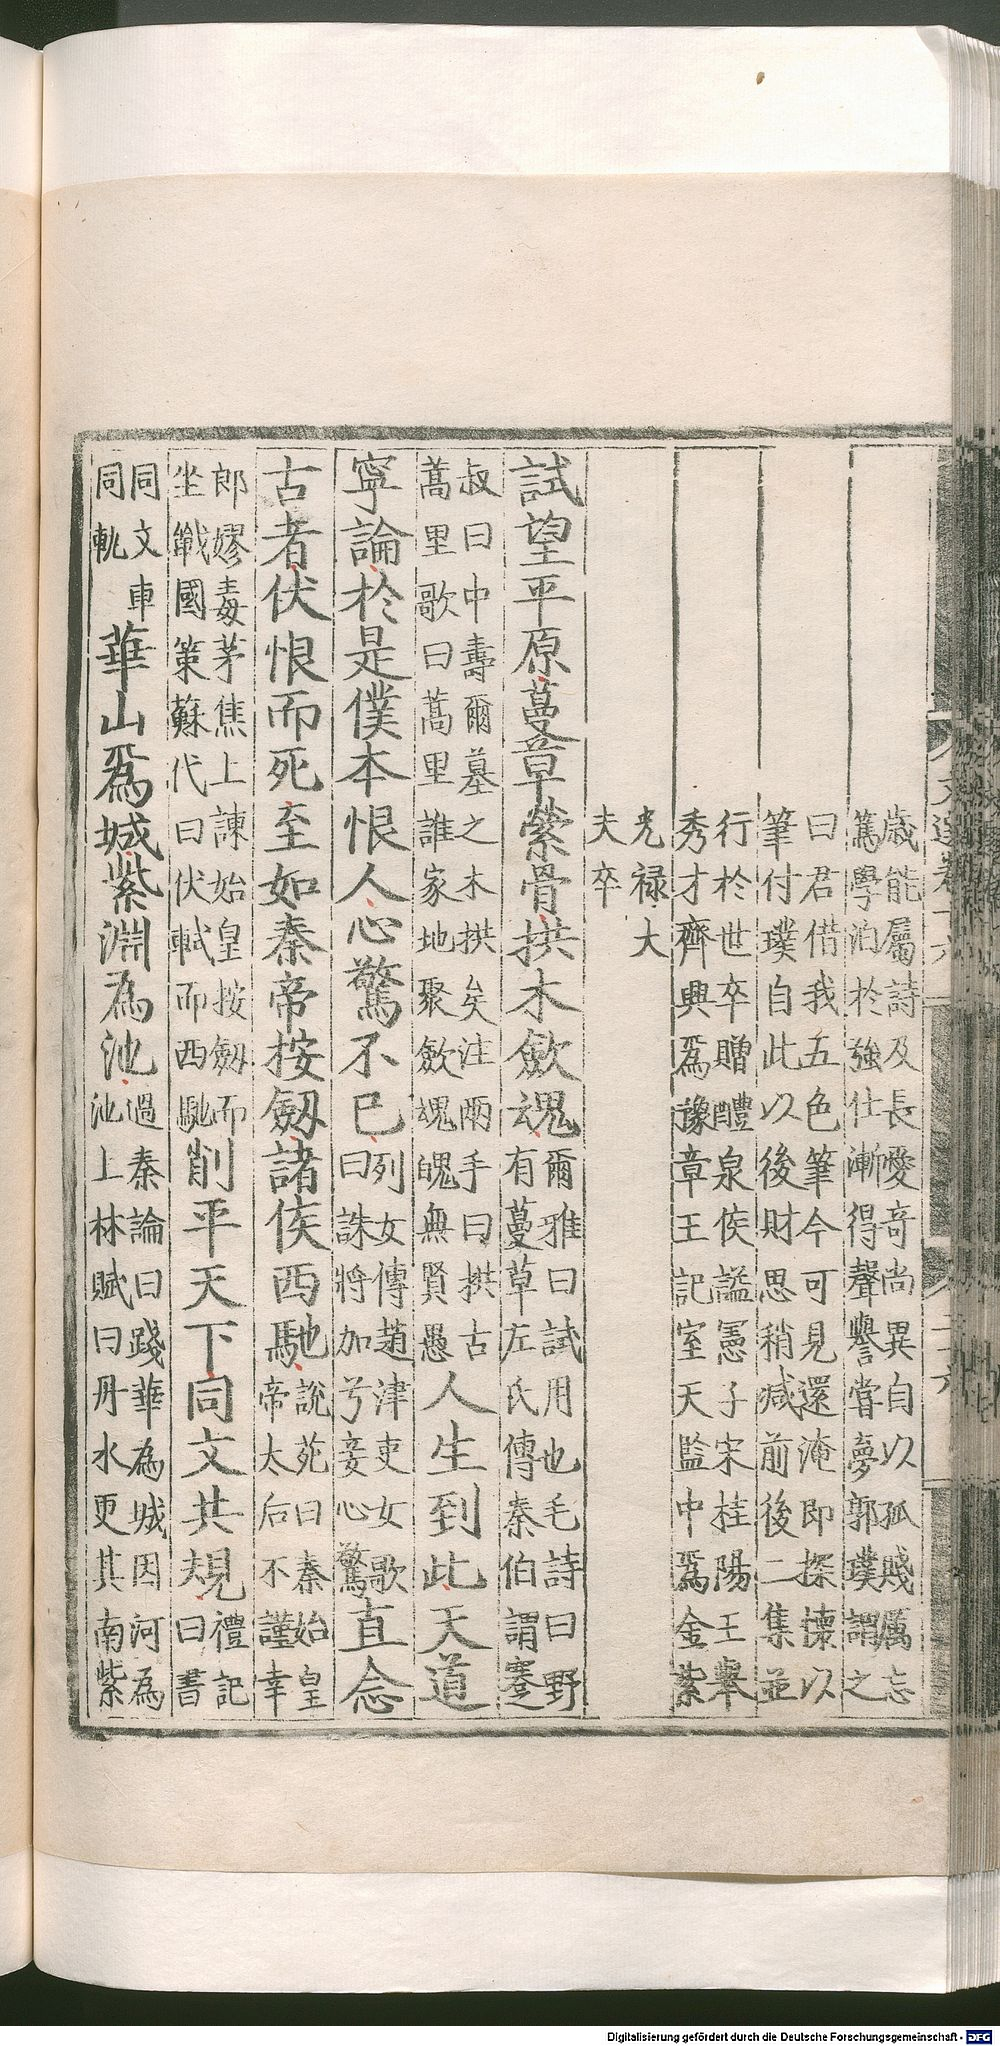 文選卷十六
歲能屬詩及長愛奇尚異自以孤賤厲忘
篤學洎於強仕漸得聲譽嘗夢郭璞謂之
曰君借我五色筆今可見還淹即探懷以
筆付璞自此以後財思稍减前後二集並
行於世卒贈醴泉侯謚憲子宋桂陽王舉
秀才齊興爲豫章王記室天監中爲金紫
光禄大
夫卒
試望平原蔓草縈骨拱木斂魂
爾雅曰試用也毛詩曰野
有蔓草左氏傳秦伯謂蹇
叔曰中壽爾墓之木拱矣注兩手曰拱古
蒿里歌曰蒿里誰家地聚斂魂魄無賢愚
人生到此天道
寧論於是僕本恨人心驚不已
列女傳趙津吏女歌
曰誅將加兮妾心驚
直念
古者伏恨而死至如秦帝按劒諸侯西馳
說苑曰秦始皇
帝太后不謹幸
郎嫪毐茅焦上諫始皇按劒而
坐戰國策蘇代曰伏軾而西馳
削平天下同文共規
禮記
曰書
同文車
同軌
華山爲城紫淵為池
過秦論曰踐華為城因河為
池上林賦曰丹水更其南紫
Digitalisierung gefördert durch die Deutsche Forschungsgemeinschaft - DFG